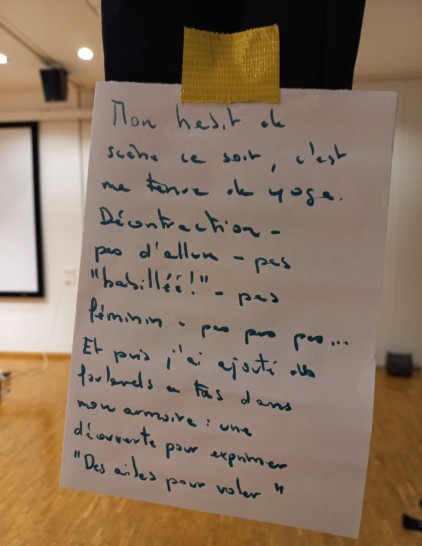 Mon habit de
scène ce soir, c'est
ma tenue de yoga.
Décontraction -
pas d'allure - pas
"habillée!" - pas
féminin - pas pas pas...
Et puis j'ai ajouté des
foulards en tas dans
mon armoire : une
découverte pour exprimer
"Des ailes pour voler"